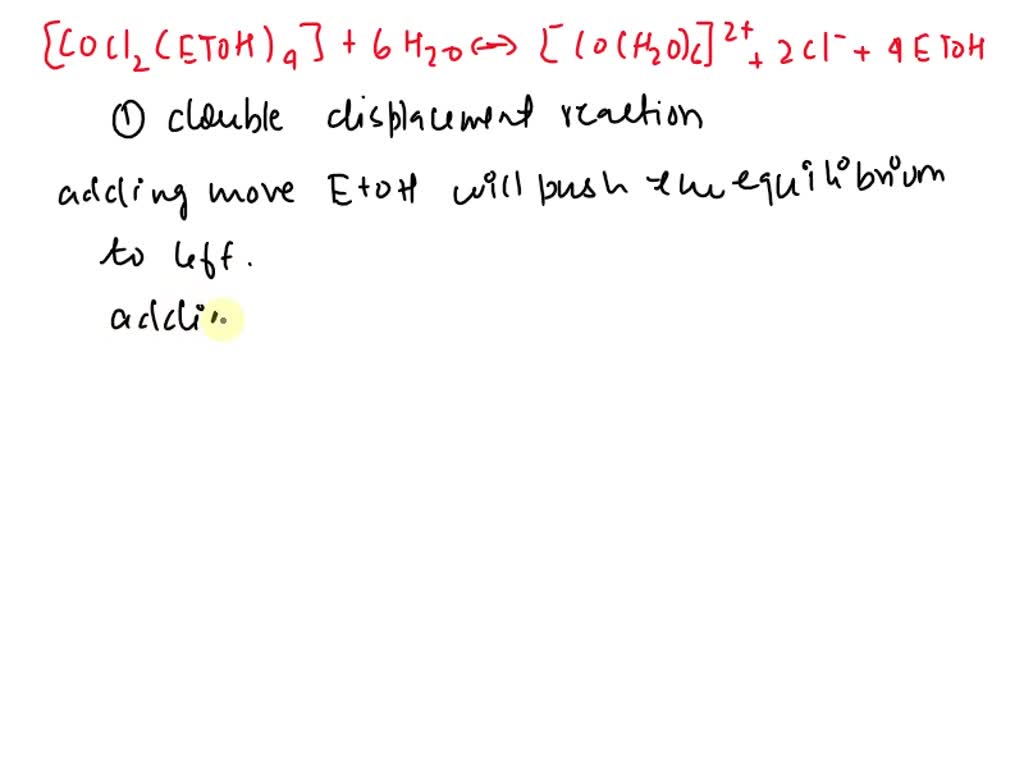 [COCl₂(ETOH)₄] + 6 H₂O ↔ [CO(H₂O)₆]²⁺ + 2Cl⁻ + 4 ETOH
① double displacement reaction
adding more EtOH will push the equilibrium
to left.
addin